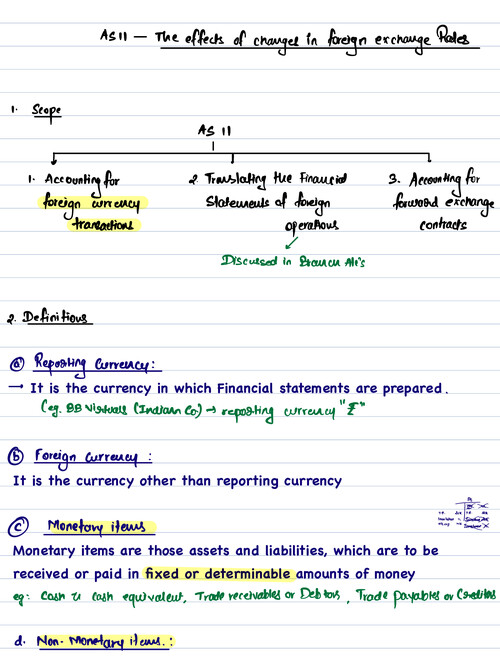 AS 11 — The effects of changes in foreign exchange Rates
1. Scope
AS 11
1. Accounting for foreign currency transactions
2. Translating the Financial Statements of foreign operations
Discussed in Branch A/c's
3. Accounting for forward exchange contracts
2. Definitions
(a) Reporting Currency:
→ It is the currency in which Financial statements are prepared.
(eg. BB Virtuals (Indian Co) → reporting currency "₹"
(b) Foreign Currency :
It is the currency other than reporting currency
(c) Monetary items
Monetary items are those assets and liabilities, which are to be
received or paid in fixed or determinable amounts of money
eg: Cash & cash equivalent, Trade receivables or Debtors, Trade payables or Creditors
d. Non-Monetary items.: